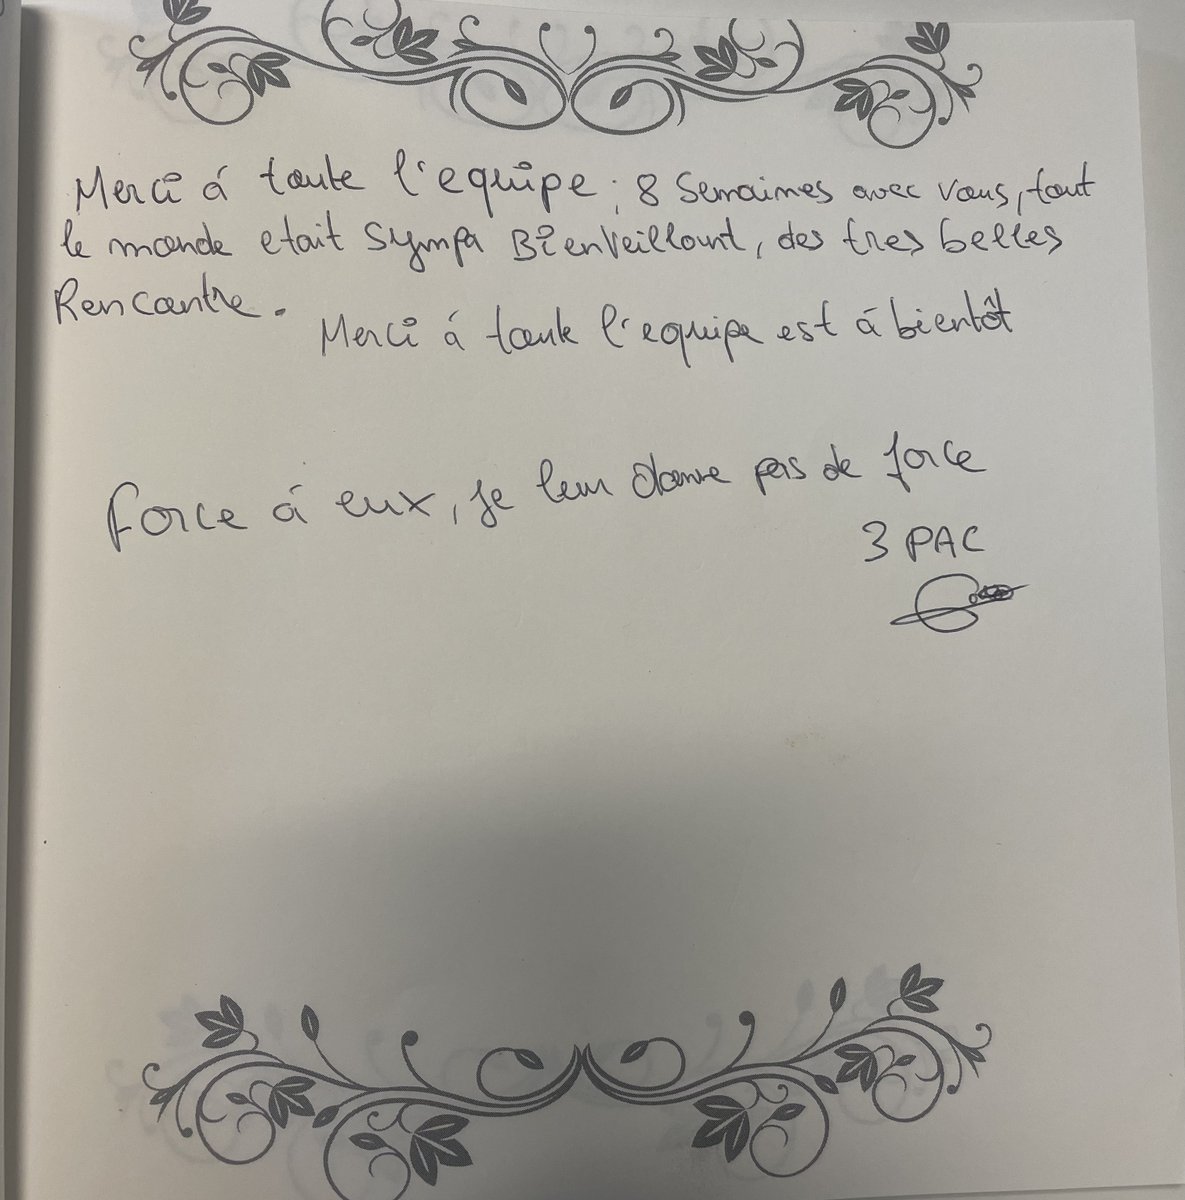 Merci á toute l'equipe, 8 Semaimes avec vous, tout
le monde etait Sympa Bienveillant, des tres belles
Rencontre.
Merci á toute l'equipe est á bientôt
Force á eux, je leur donne pas de force
3 PAC